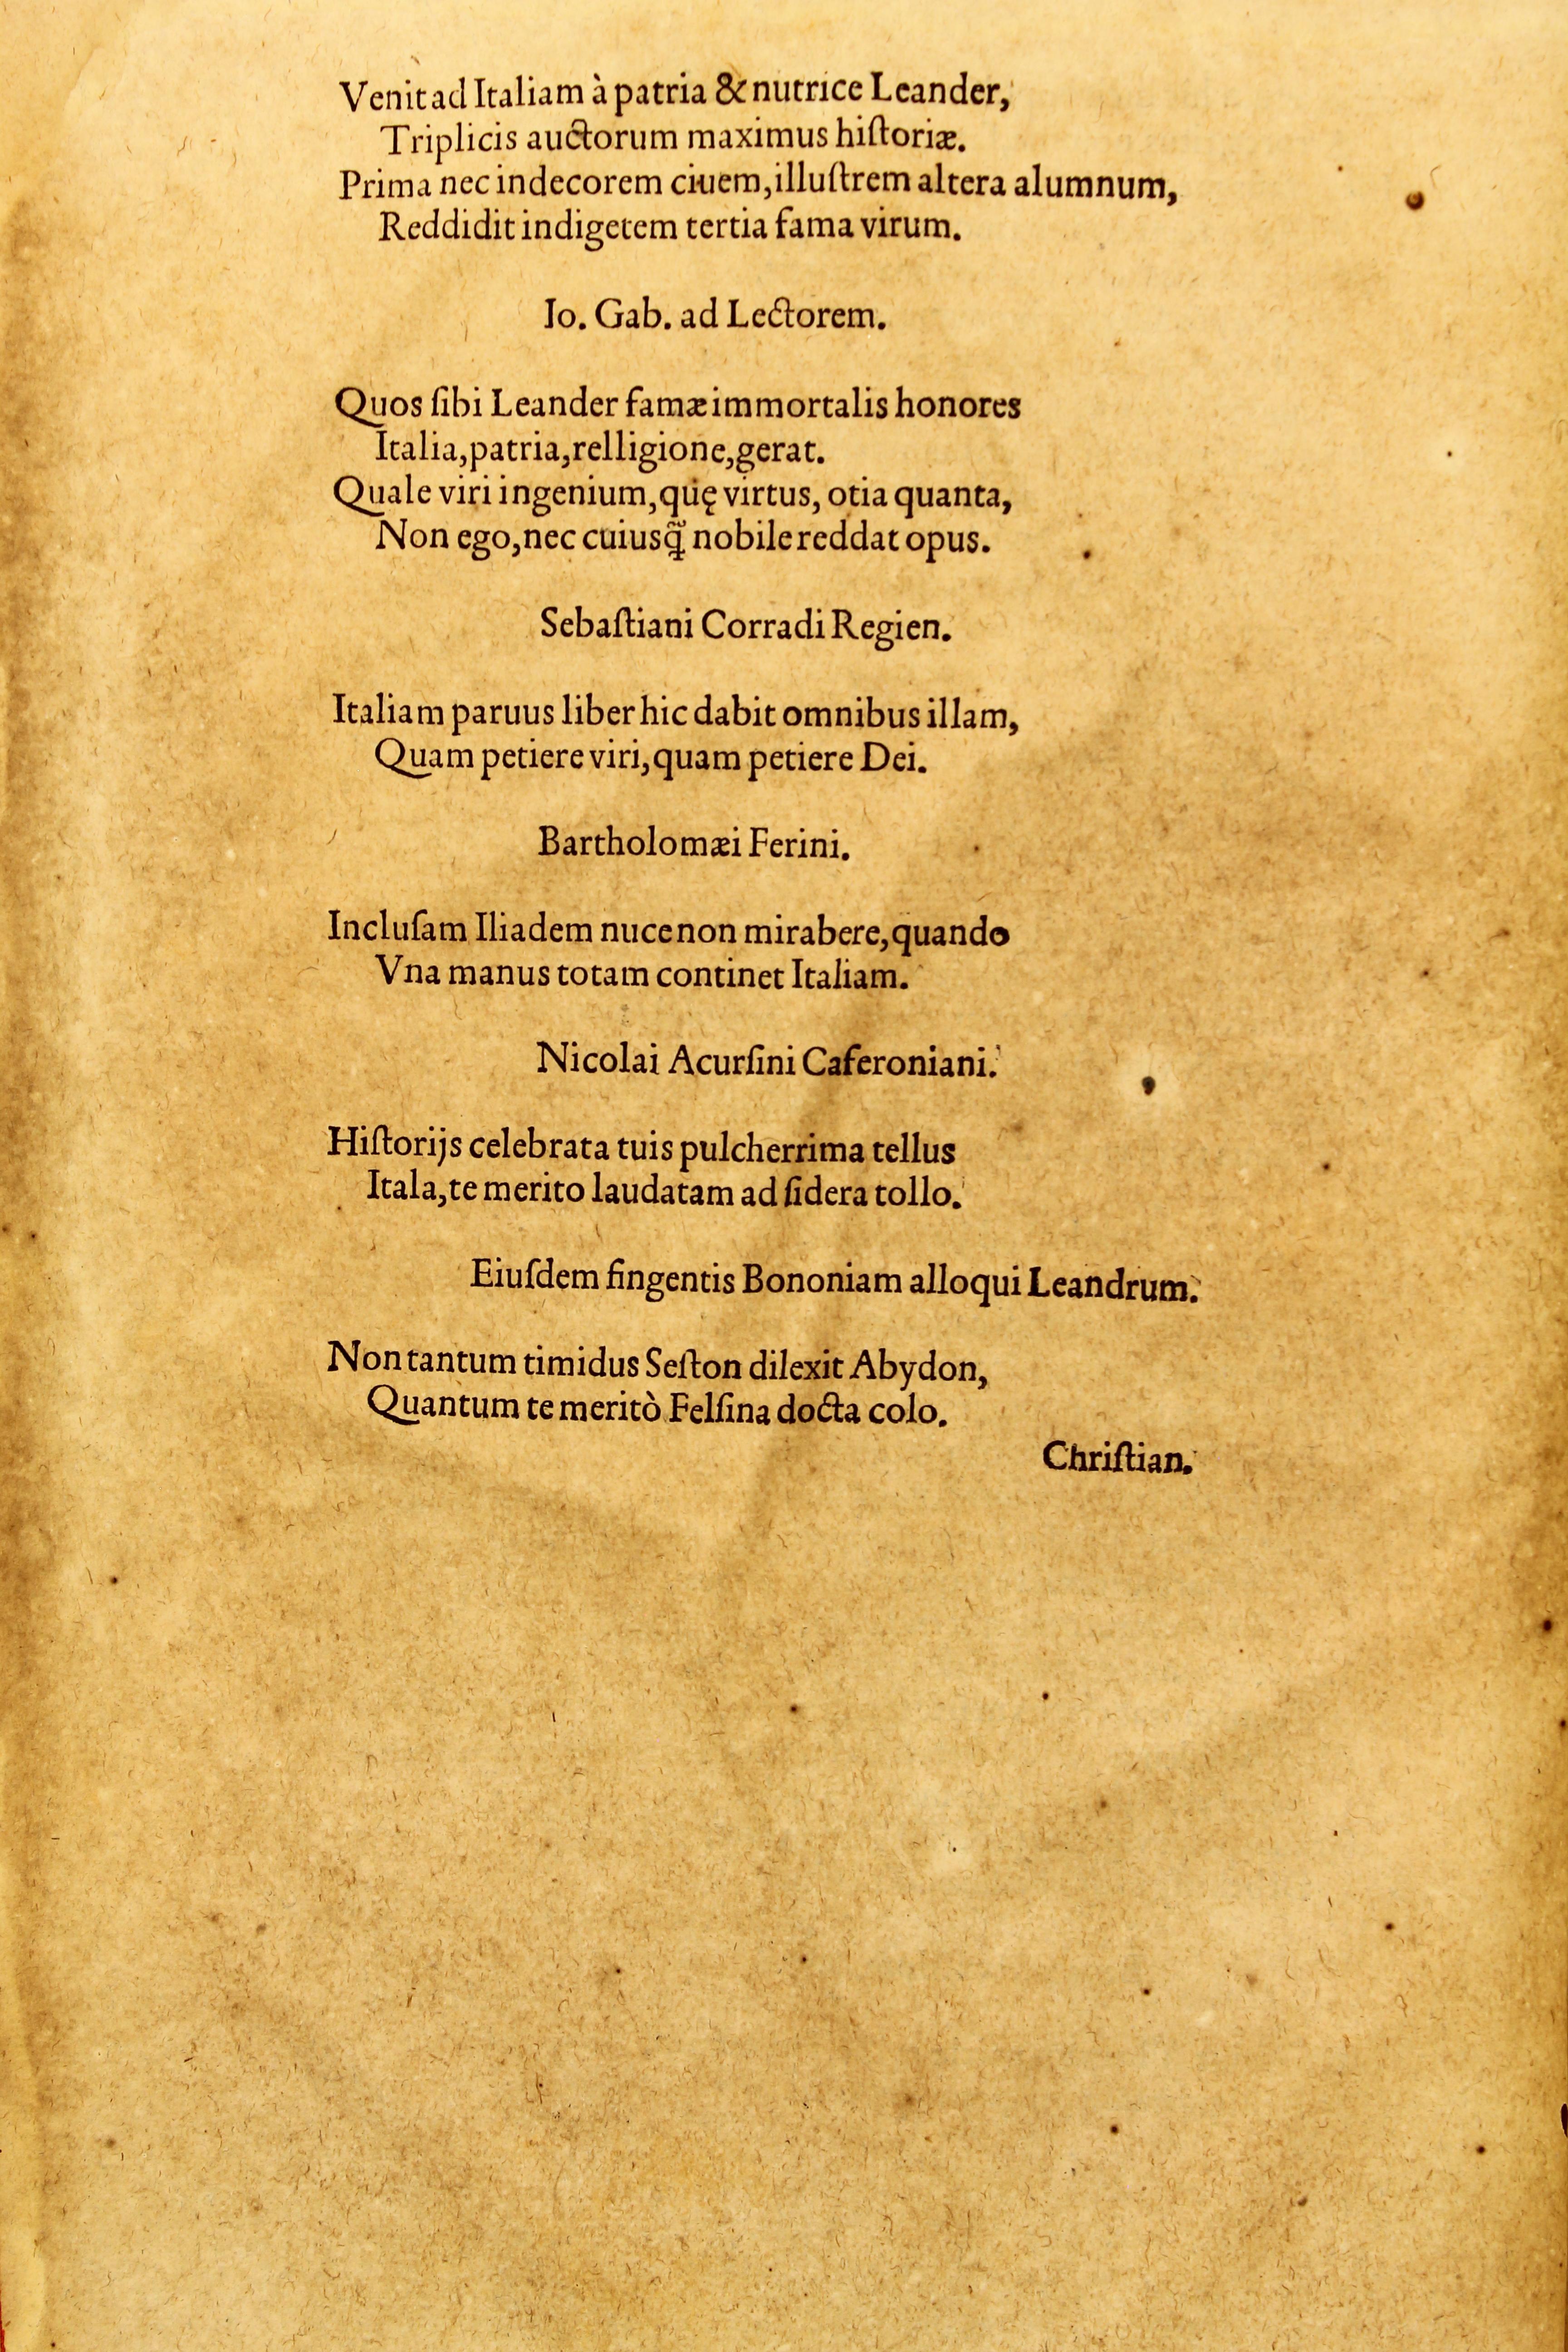 Venit ad Italiam à patria & nutrice Leander,
Triplicis auctorum maximus hiſtoriæ.
Prima nec indecorem ciuem, illuſtrem altera alumnum,
Reddidit indigetem tertia fama virum.
Io. Gab. ad Lectorem.
Quos ſibi Leander famæ immortalis honores
Italia, patria, relligione, gerat.
Quale viri ingenium, quę virtus, otia quanta,
Non ego, nec cuiusq̃ nobile reddat opus.
Sebaſtiani Corradi Regien.
Italiam paruus liber hic dabit omnibus illam,
Quam petiere viri, quam petiere Dei.
Bartholomæi Ferini.
Incluſam Iliadem nuce non mirabere, quando
Vna manus totam continet Italiam.
Nicolai Acurſini Caferoniani.
Hiſtorijs celebrata tuis pulcherrima tellus
Itala, te merito laudatam ad ſidera tollo.
Eiuſdem fingentis Bononiam alloqui Leandrum.
Non tantum timidus Seſton dilexit Abydon,
Quantum te meritò Felſina docta colo.
Chriſtian.